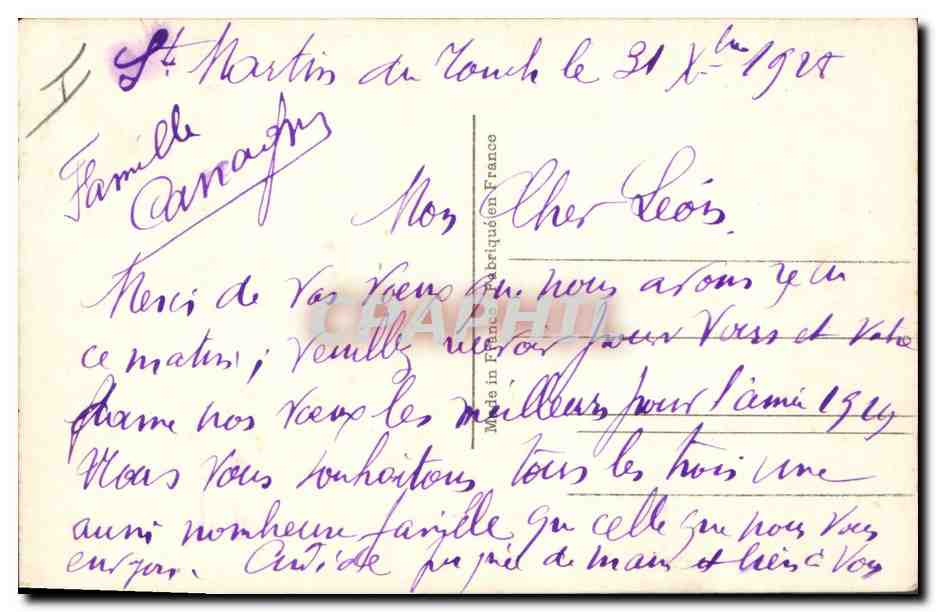 St. Martin du Touch le 31 Xbre 1928
Famille
Mon Cher Léon.
Merci de vos vœux que nous avons reçu
ce matin; veuillez recevoir pour vous et votre
nos vœux les meilleurs pour l'année 1929
Nous vous souhaitons tous les trois une
aussi nombreuse famille que celle que nous vous
Cordiale poignée de mains et bien à vous
Made in France Fabriqué en France
CPAPHIL